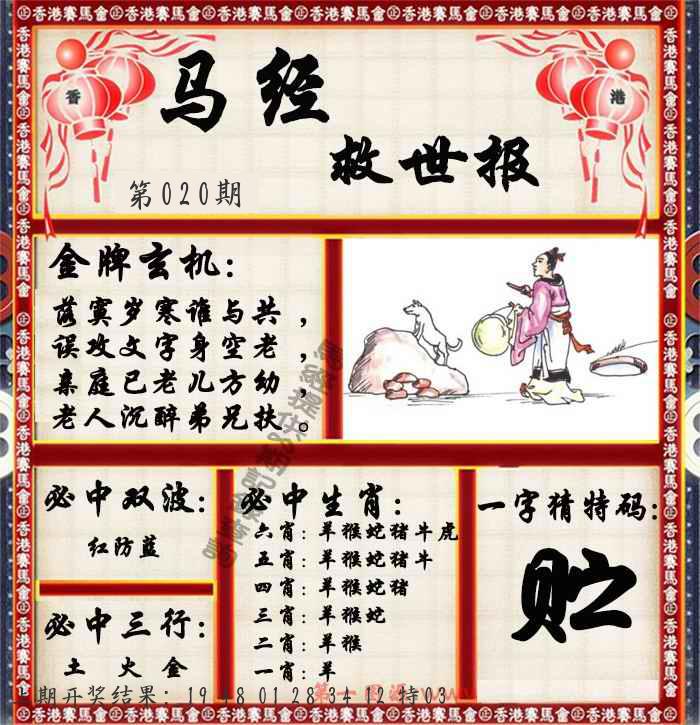 香港賽馬會 香港賽馬會 香港賽馬會 香港賽馬會 香港賽馬會 香港賽馬會
香
港
马经
救世报
第020期
金牌玄机:
落寞岁寒谁与共，
误攻文字身空老，
亲庭已老儿方幼，
老人沉醉弟兄扶。
必中双波:
红防蓝
必中三行:
土 火 金
必中生肖:
六肖:羊猴蛇猪牛虎
五肖:羊猴蛇猪牛
四肖:羊猴蛇猪
三肖:羊猴蛇
二肖:羊猴
一肖:羊
一字猜特码:
贮
期开奖结果: 19 48 01 28 34 12 特03